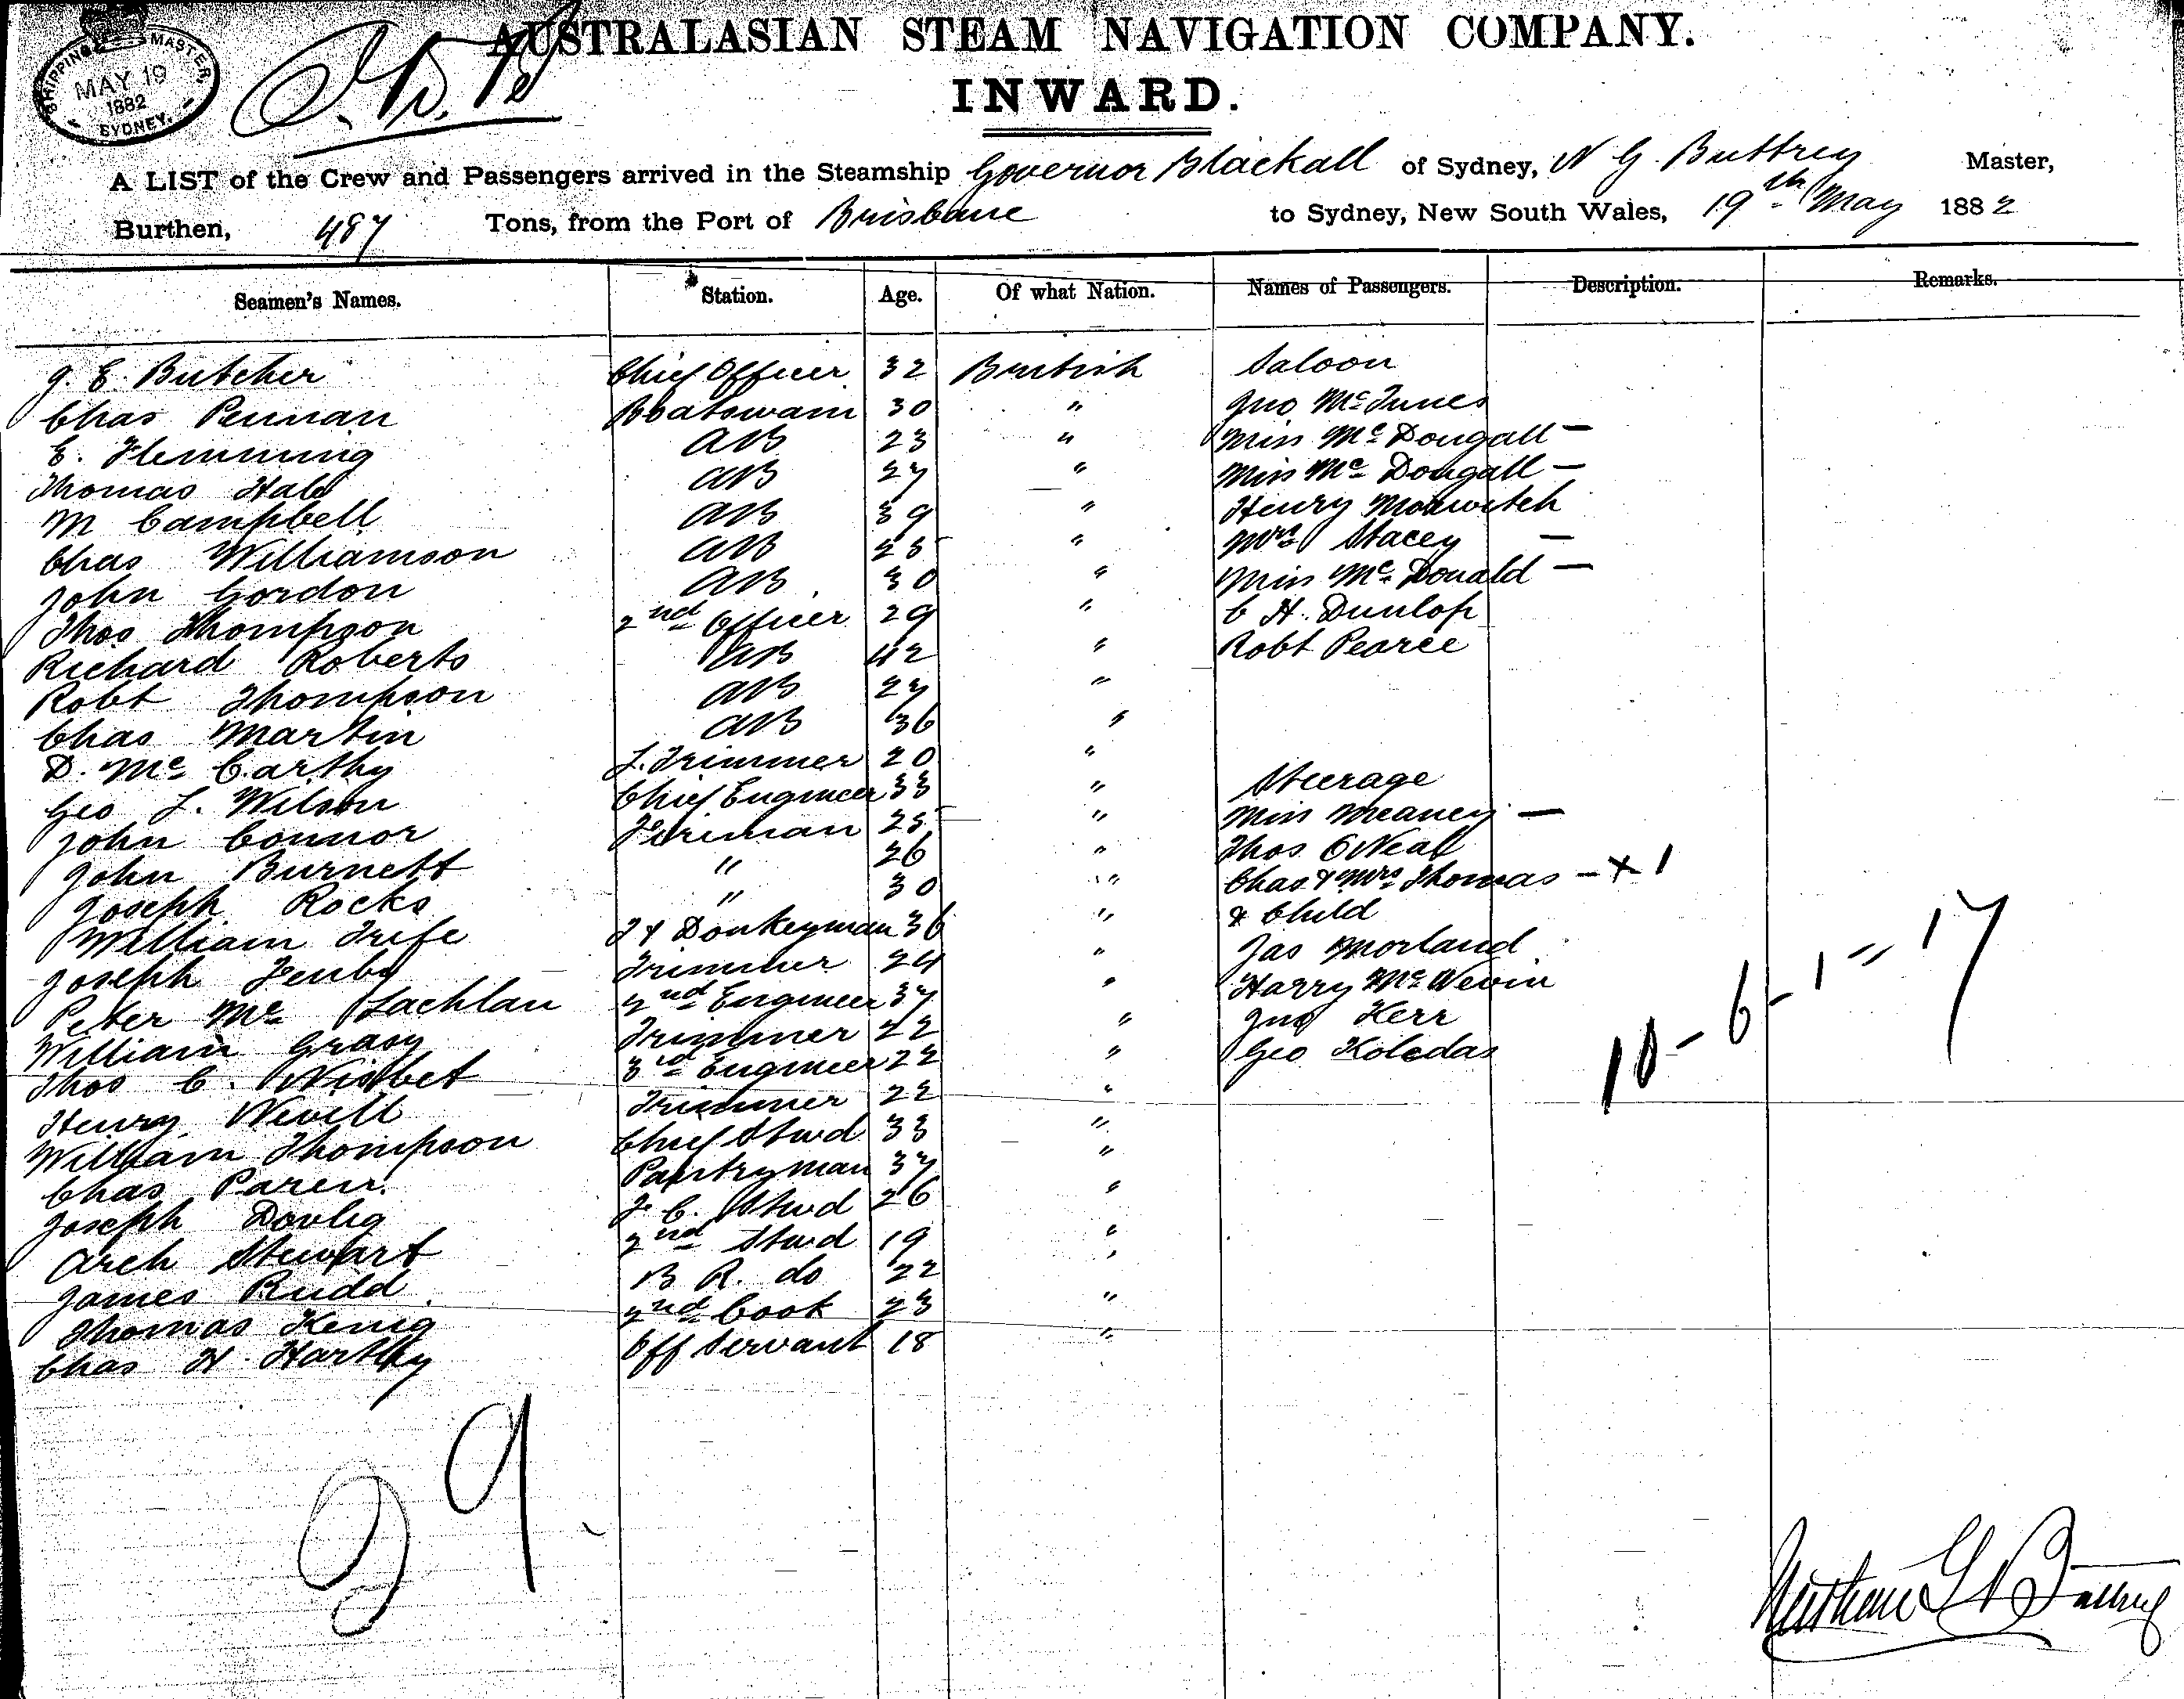 SHIPPING MASTER,
MAY 19
1882
SYDNEY.
AUSTRALASIAN STEAM NAVIGATION COMPANY.
INWARD.
A LIST of the Crew and Passengers arrived in the Steamship Governor Blackall of Sydney, N G. Buttrey Master,
Burthen, 487 Tons, from the Port of Brisbane to Sydney, New South Wales, 19th May 1882
Seamen's Names. Station. Age. Of what Nation. Names of Passengers. Description. Remarks.
G. E. Butcher Chief Officer 32 British Saloon
Chas Penman Boatswain 30 " Jno McInnes
E. Flemming AB 23 " Miss McDougall —
Thomas Hale AB 27 " Miss McDougall —
M Campbell AB 39 " Henry
Chas Williamson AB 25 " Mrs Stacey —
John Gordon AB 30 " Miss McDonald —
Thos Thompson 2nd Officer 29 " C H. Dunlop
Richard Roberts AB 42 " Robt Pearce
Robt Thompson AB 27 "
Chas Martin AB 36 "
D. McCarthy L. Trimmer 20 "
Geo L. Wilson Chief Engineer 33 " Steerage
John Connor Fireman 25 " Miss Meaney —
John Burnett " 26 " Thos O'Neal
Joseph Rocks " 30 " Chas & Mrs Thomas — x 1
William Trife F & Donkeyman 36 " & Child
Joseph Fenby Trimmer 24 " Jas Morland
Peter McLachlan 2nd Engineer 37 " Harry McNevin
William Grasy Trimmer 22 " Jno Kerr
Thos C. Nisbet 3rd Engineer 22 " Geo Koledas
Henry Nevill Trimmer 22 "
William Thompson Chief Stwd 33 "
Chas Paren. Pantryman 37 "
Joseph F. C. Stwd 26 "
Arch Stewart 2nd Stwd 19 "
James Rudd B R. do 22 "
Thomas Kenig 2nd Cook 23 "
Chas H. Hartley Off Servant 18 "
10 - 6 - 1 = 17
29